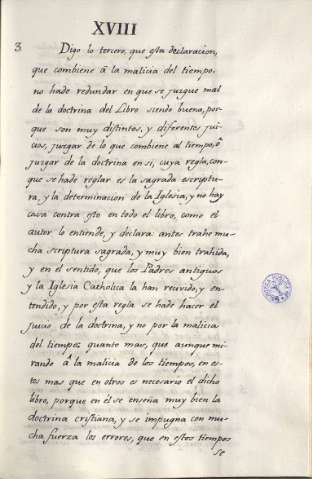 XVIII
3
Digo lo tercero, que esta declaracion,
que combiene â la malicia del tiempo,
no hade redundar en que se juzgue mal
de la doctrina del Libro siendo buena, por-
que son muy distintos, y diferentes jui-
cios, juzgar de lo que combiene al tiempo, ô
juzgar de la doctrina en si, cuya regla, con-
que se hade reglar es la sagrada escriptu-
ra, y la determinacion de la Iglesia, y no hay
cosa contra esto en todo el libro, como el
autor lo entiende, y declara antes trahe mu-
cha scriptura sagrada, y muy bien trahida,
y en el sentido, que los Padres antiguos
y la Iglesia Catholica la han recivido, y en-
tendido, y por esta regla se hade hacer el
juicio de la doctrina, y no por la malicia
del tiempo: quanto mas, que aunque mi-
rando â la malicia de los tiempos, en es-
tos mas que en otros es necesario el dicho
libro, porque en él se enseña muy bien la
doctrina cristiana, y se impugna con mu-
cha fuerza los errores, que en estos tiempos
se